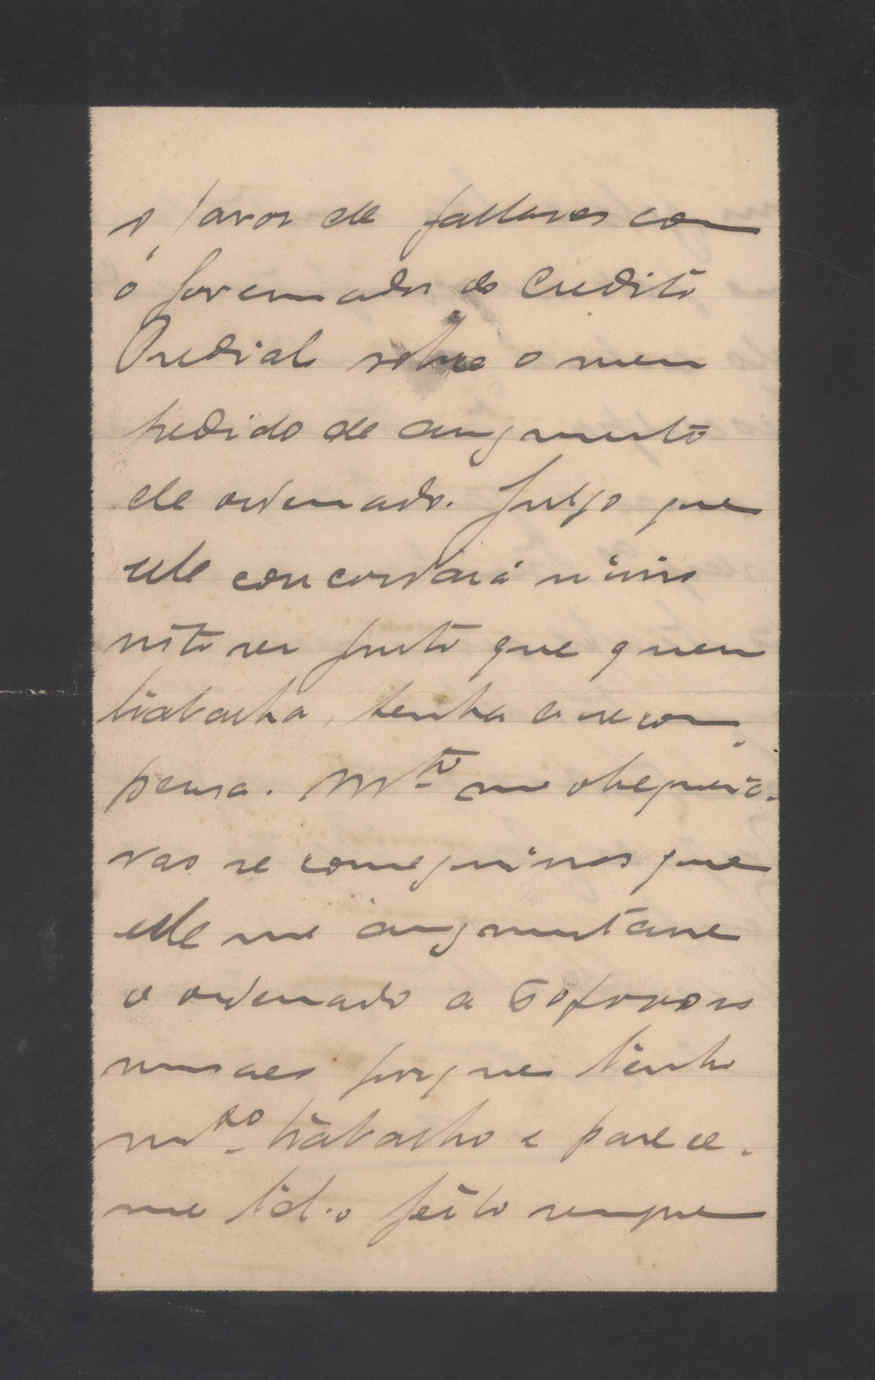 o favor de fallares com
o Governador do Credito
Predial sobre o meu
pedido de augmento
de ordenado. Julgo que
elle concordará n'isso
visto ser justo que quem
trabalha, tenha a recom
pensa. Mto me obsequia-
vas se conseguisses que
elle me augmentasse
o ordenado a
mensaes porque tenho
mto trabalho e parece-
me tel-o feito sempre